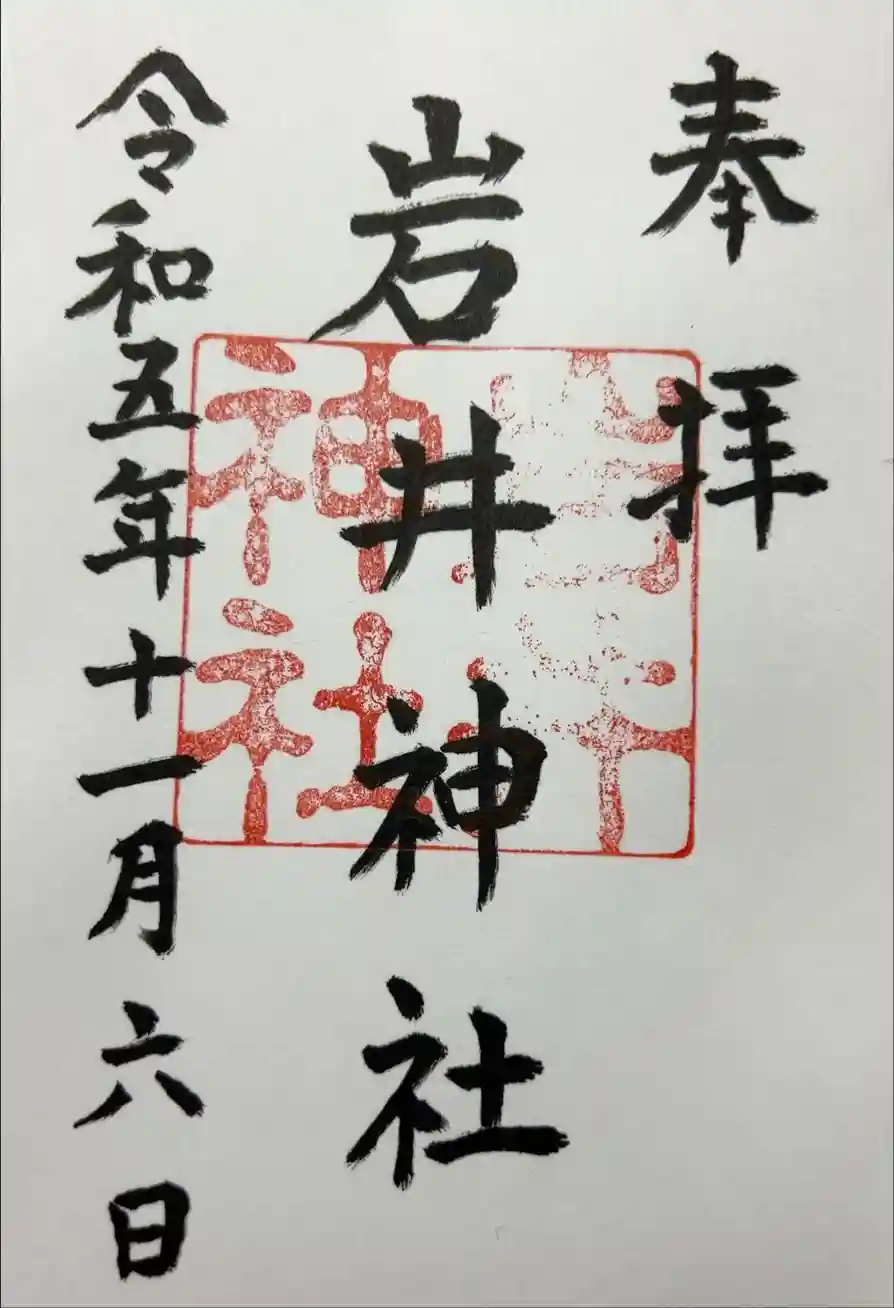 奉拝
岩井神社
令和五年十一月六日
岩井
神社